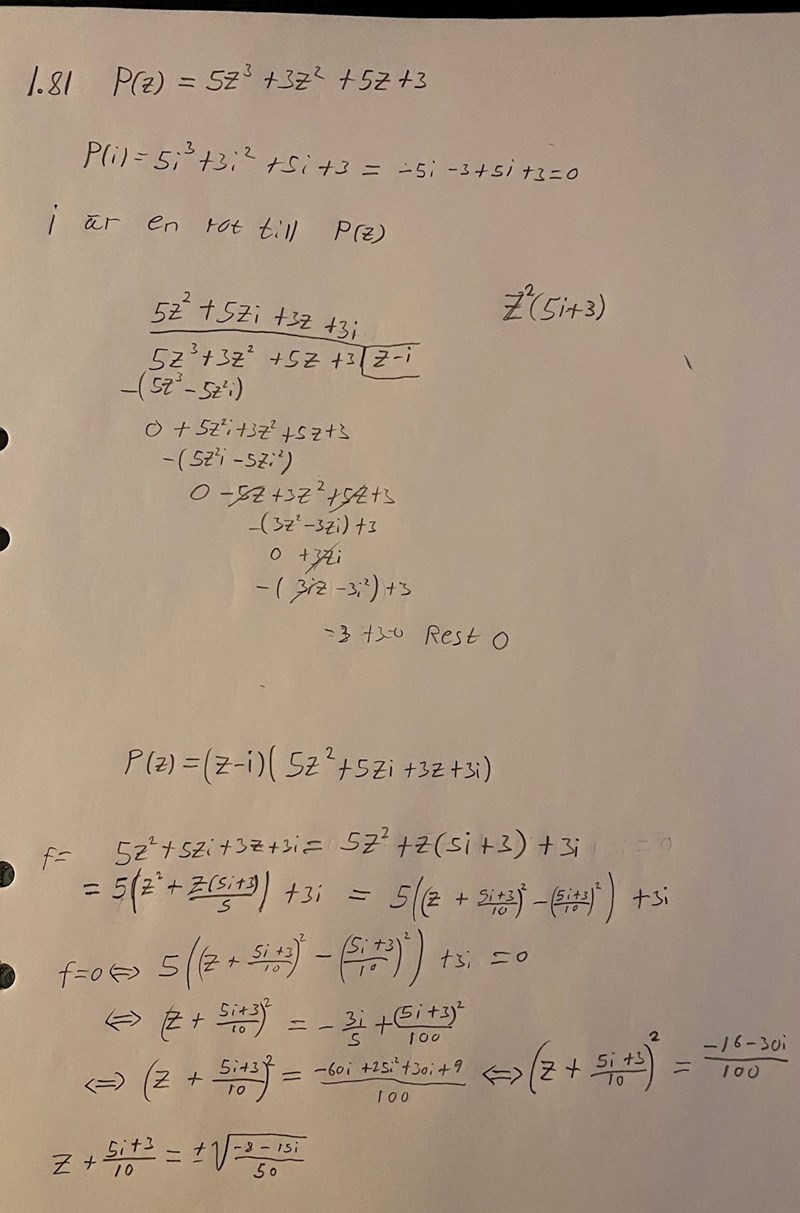 1.81 P(z) = 5z³ + 3z² + 5z + 3
P(i) = 5i³ + 3i² + 5i + 3 = -5i - 3 + 5i + 3 = 0
i är en rot till P(z)
z²(5i+3)
5z² + 5zi + 3z + 3i
5z³ + 3z² + 5z + 3 | z-i
-(5z³ - 5z²i)
0 + 5z²i + 3z² + 5z + 3
-(5z²i - 5zi²)
0 - 5z + 3z² + 5z + 3
-(3z² - 3zi) + 3
0 + 3zi
-(3iz - 3i²) + 3
-3 + 3 = 0 Rest 0
P(z) = (z-i)(5z² + 5zi + 3z + 3i)
f = 5z² + 5zi + 3z + 3i = 5z² + z(5i+3) + 3i = 0
= 5(z² + z(5i+3)/5) + 3i = 5((z + (5i+3)/10)² - ((5i+3)/10)²) + 3i
f=0 ⇔ 5((z + (5i+3)/10)² - ((5i+3)/10)²) + 3i = 0
⇔ (z + (5i+3)/10)² = -3i/5 + (5i+3)²/100
⇔ (z + (5i+3)/10)² = (-60i + 25i² + 30i + 9)/100 ⇔ (z + (5i+3)/10)² = (-16-30i)/100
z + (5i+3)/10 = ±√((-8-15i)/50)